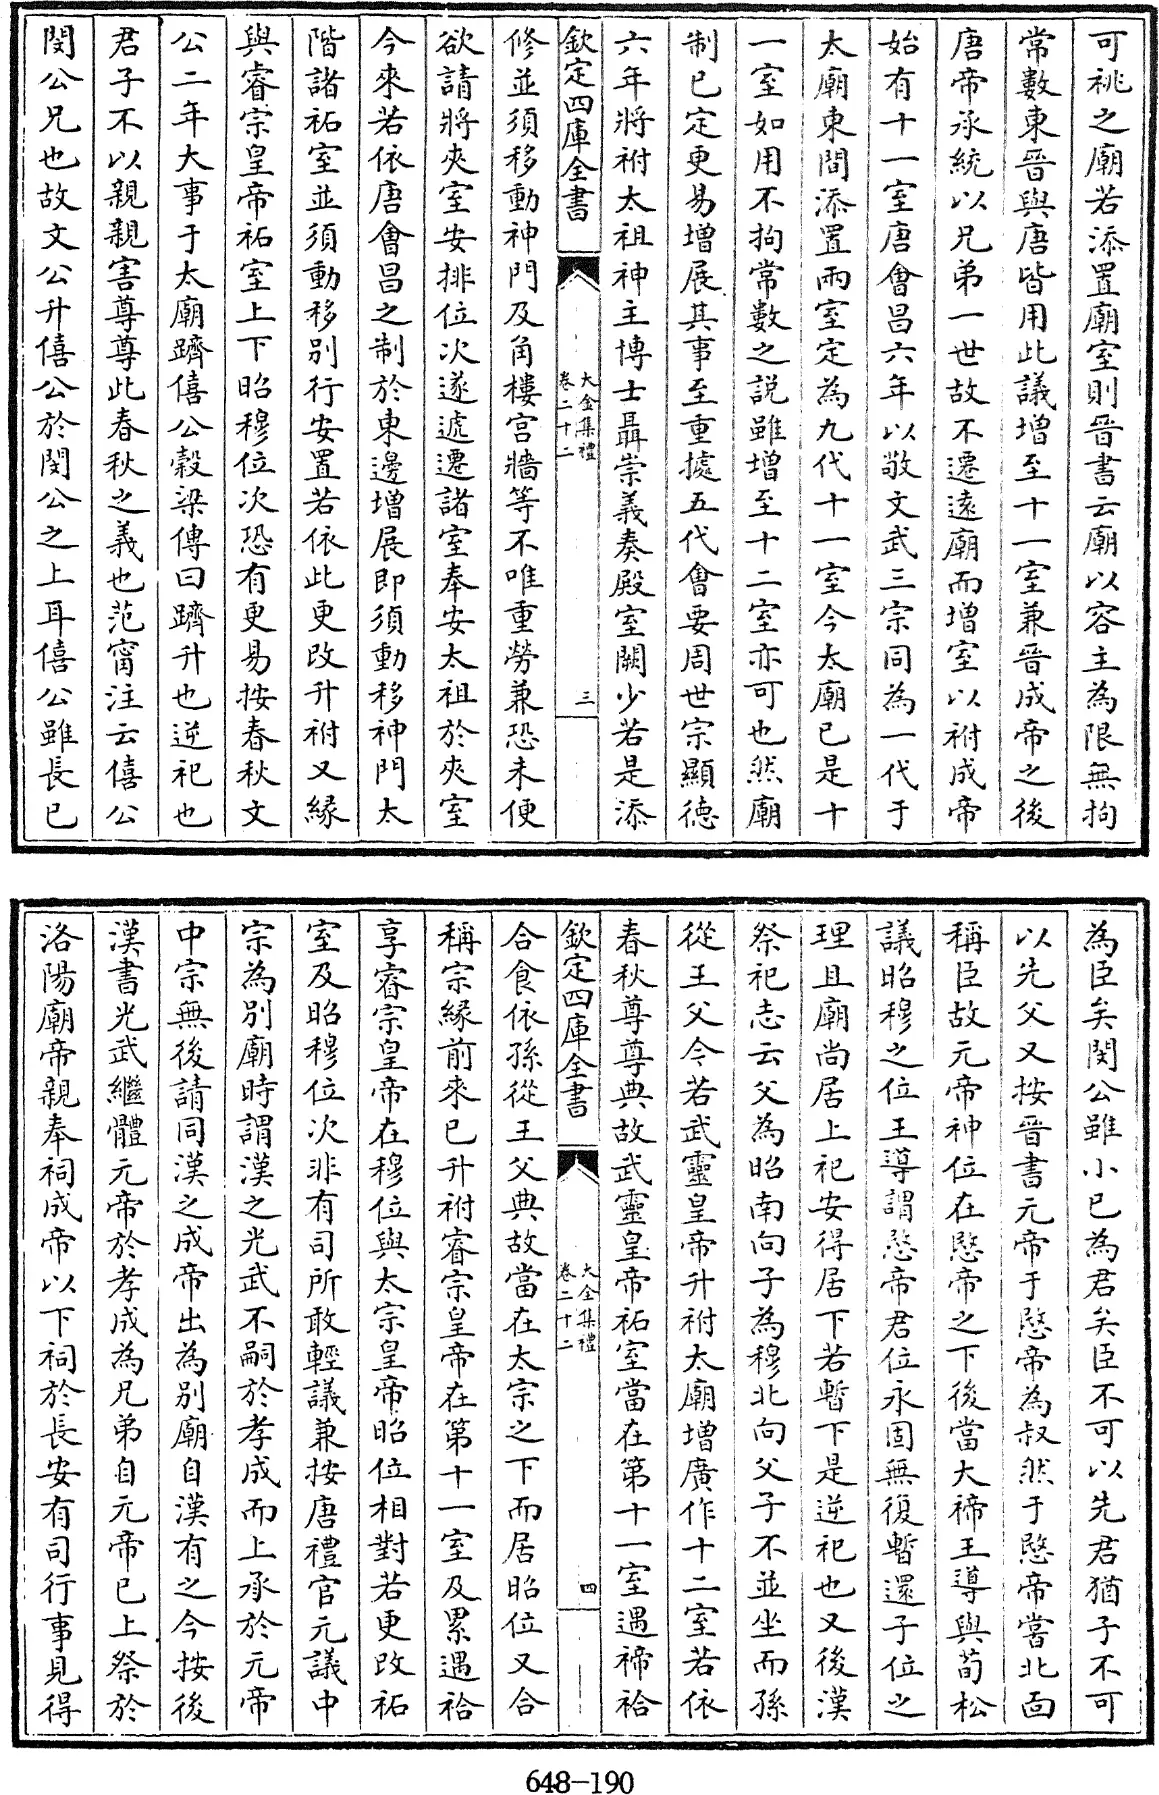 可祧之廟若添置廟室則晉書云廟以容主為限無拘
常數東晉與唐皆用此議增至十一室兼晉成帝之後
唐帝承統以兄弟一世故不遷遠廟而增室以祔成帝
始有十一室唐會昌六年以敬文武三宗同為一代于
太廟東間添置兩室定為九代十一室今太廟已是十
一室如用不拘常數之説雖增至十二室亦可也然廟
制已定更易增展其事至重據五代會要周世宗顯德
六年將祔太祖神主博士聶崇義奏殿室闕少若是添
欽定四庫全書
大金集禮
卷二十二
三
修並須移動神門及角樓宫牆等不唯重勞兼恐未便
欲請將夾室安排位次遂遞遷諸室奉安太祖於夾室
今來若依唐會昌之制於東邊增展即須動移神門太
階諸祏室並須動移别行安置若依此更改升祔又緣
與睿宗皇帝祏室上下昭穆位次恐有更易按春秋文
公二年大事于太廟躋僖公穀梁傳曰躋升也逆祀也
君子不以親親害尊尊此春秋之義也范甯注云僖公
閔公兄也故文公升僖公於閔公之上耳僖公雖長已
為臣矣閔公雖小已為君矣臣不可以先君猶子不可
以先父又按晉書元帝于愍帝為叔然于愍帝嘗北面
稱臣故元帝神位在愍帝之下後當大禘王導與荀松
議昭穆之位王導謂愍帝君位永固無復暫還子位之
理且廟尚居上祀安得居下若暫下是逆祀也又後漢
祭祀志云父為昭南向子為穆北向父子不並坐而孫
從王父今若武靈皇帝升祔太廟增廣作十二室若依
春秋尊尊典故武靈皇帝祏室當在第十一室遇禘祫
欽定四庫全書
大金集禮
卷二十二
四
合食依孫從王父典故當在太宗之下而居昭位又合
稱宗緣前來已升祔睿宗皇帝在第十一室及累遇祫
享睿宗皇帝在穆位與太宗皇帝昭位相對若更改祏
室及昭穆位次非有司所敢輕議兼按唐禮官元議中
宗為别廟時謂漢之光武不嗣於孝成而上承於元帝
中宗無後請同漢之成帝出為别廟自漢有之今按後
漢書光武繼體元帝於孝成為兄弟自元帝已上祭於
洛陽廟帝親奉祠成帝以下祠於長安有司行事見得
648-190